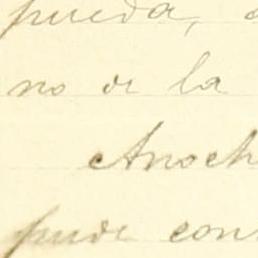 pueda,
no de la
Anoch
pude con